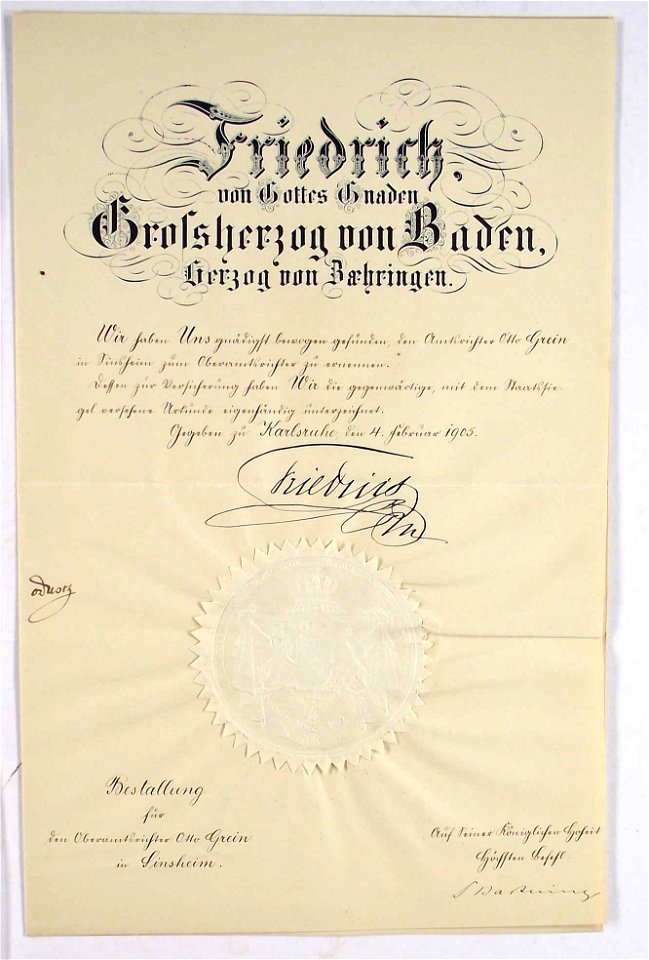 Friedrich,
von Gottes Gnaden
Grossherzog von Baden,
Herzog von Zæhringen.
Wir haben Uns gnädigst bewogen gefunden, den Amtsrichter Otto Grein
in Sinsheim zum Oberamtsrichter zu ernennen.
Dessen zur Versicherung haben Wir die gegenwärtige, mit dem Staatssie-
gel versehene Urkunde eigenhändig unterzeichnet.
Gegeben zu Karlsruhe, den 4. Februar 1905.
Friedrich
Bestallung
für
den Oberamtsrichter Otto Grein
in Sinsheim.
Auf Seiner Königlichen Hoheit
Höchsten Befehl: